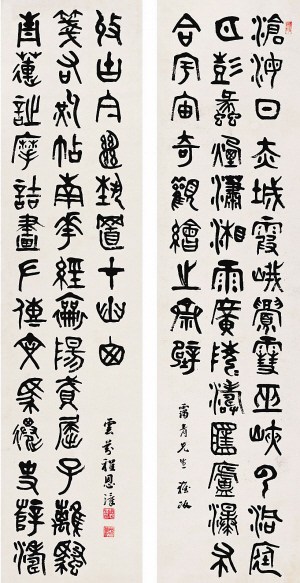 滄海日赤城霞峨眉雪巫峽雲洞庭
月彭蠡煙瀟湘雨廣陵濤匡廬瀑布
合宇宙奇觀繪齋壁
青先生雅改
青蓮詩摩詰畫左傳文馬遷史薛濤
箋右軍帖南華經賦屈子離騷
收古今絕藝置山囱
雲芬程恩澤